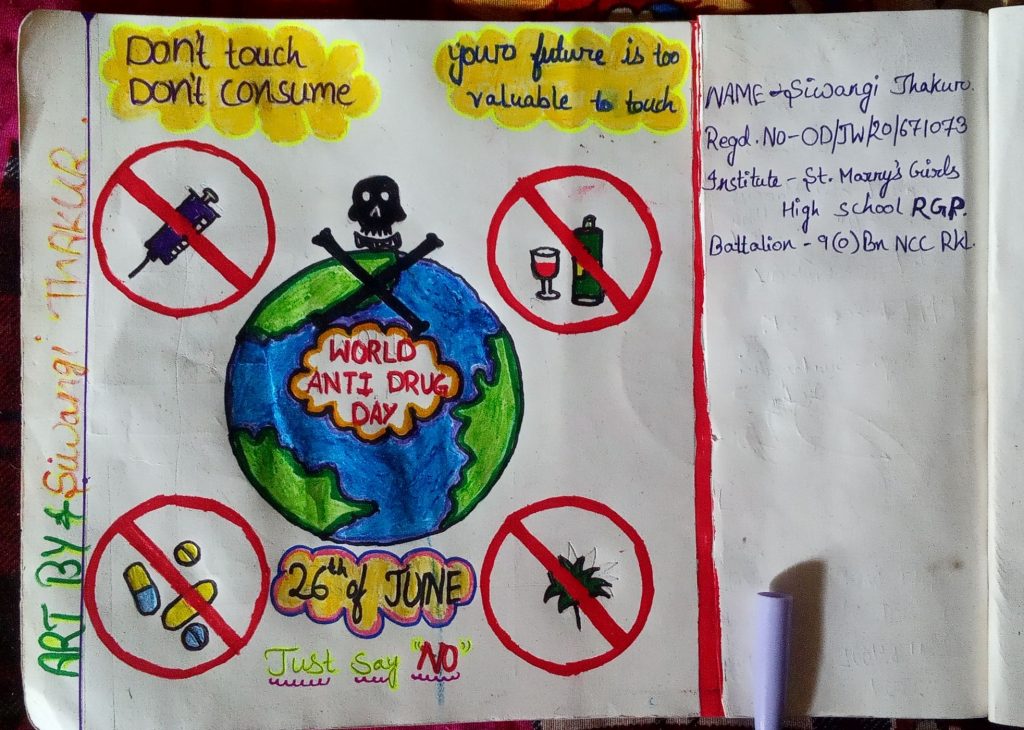 Don't touch
Don't consume
your future is too
valuable to touch
WORLD
ANTI DRUG
DAY
26th of JUNE
Just Say "NO"
ART BY Siwangi THAKUR
NAME - Siwangi Thakur.
Regd. No - OD/JW/20/671073
Institute - St. Marry's Girls
High School RGP.
Battalion - 9(O) Bn NCC Rkl.